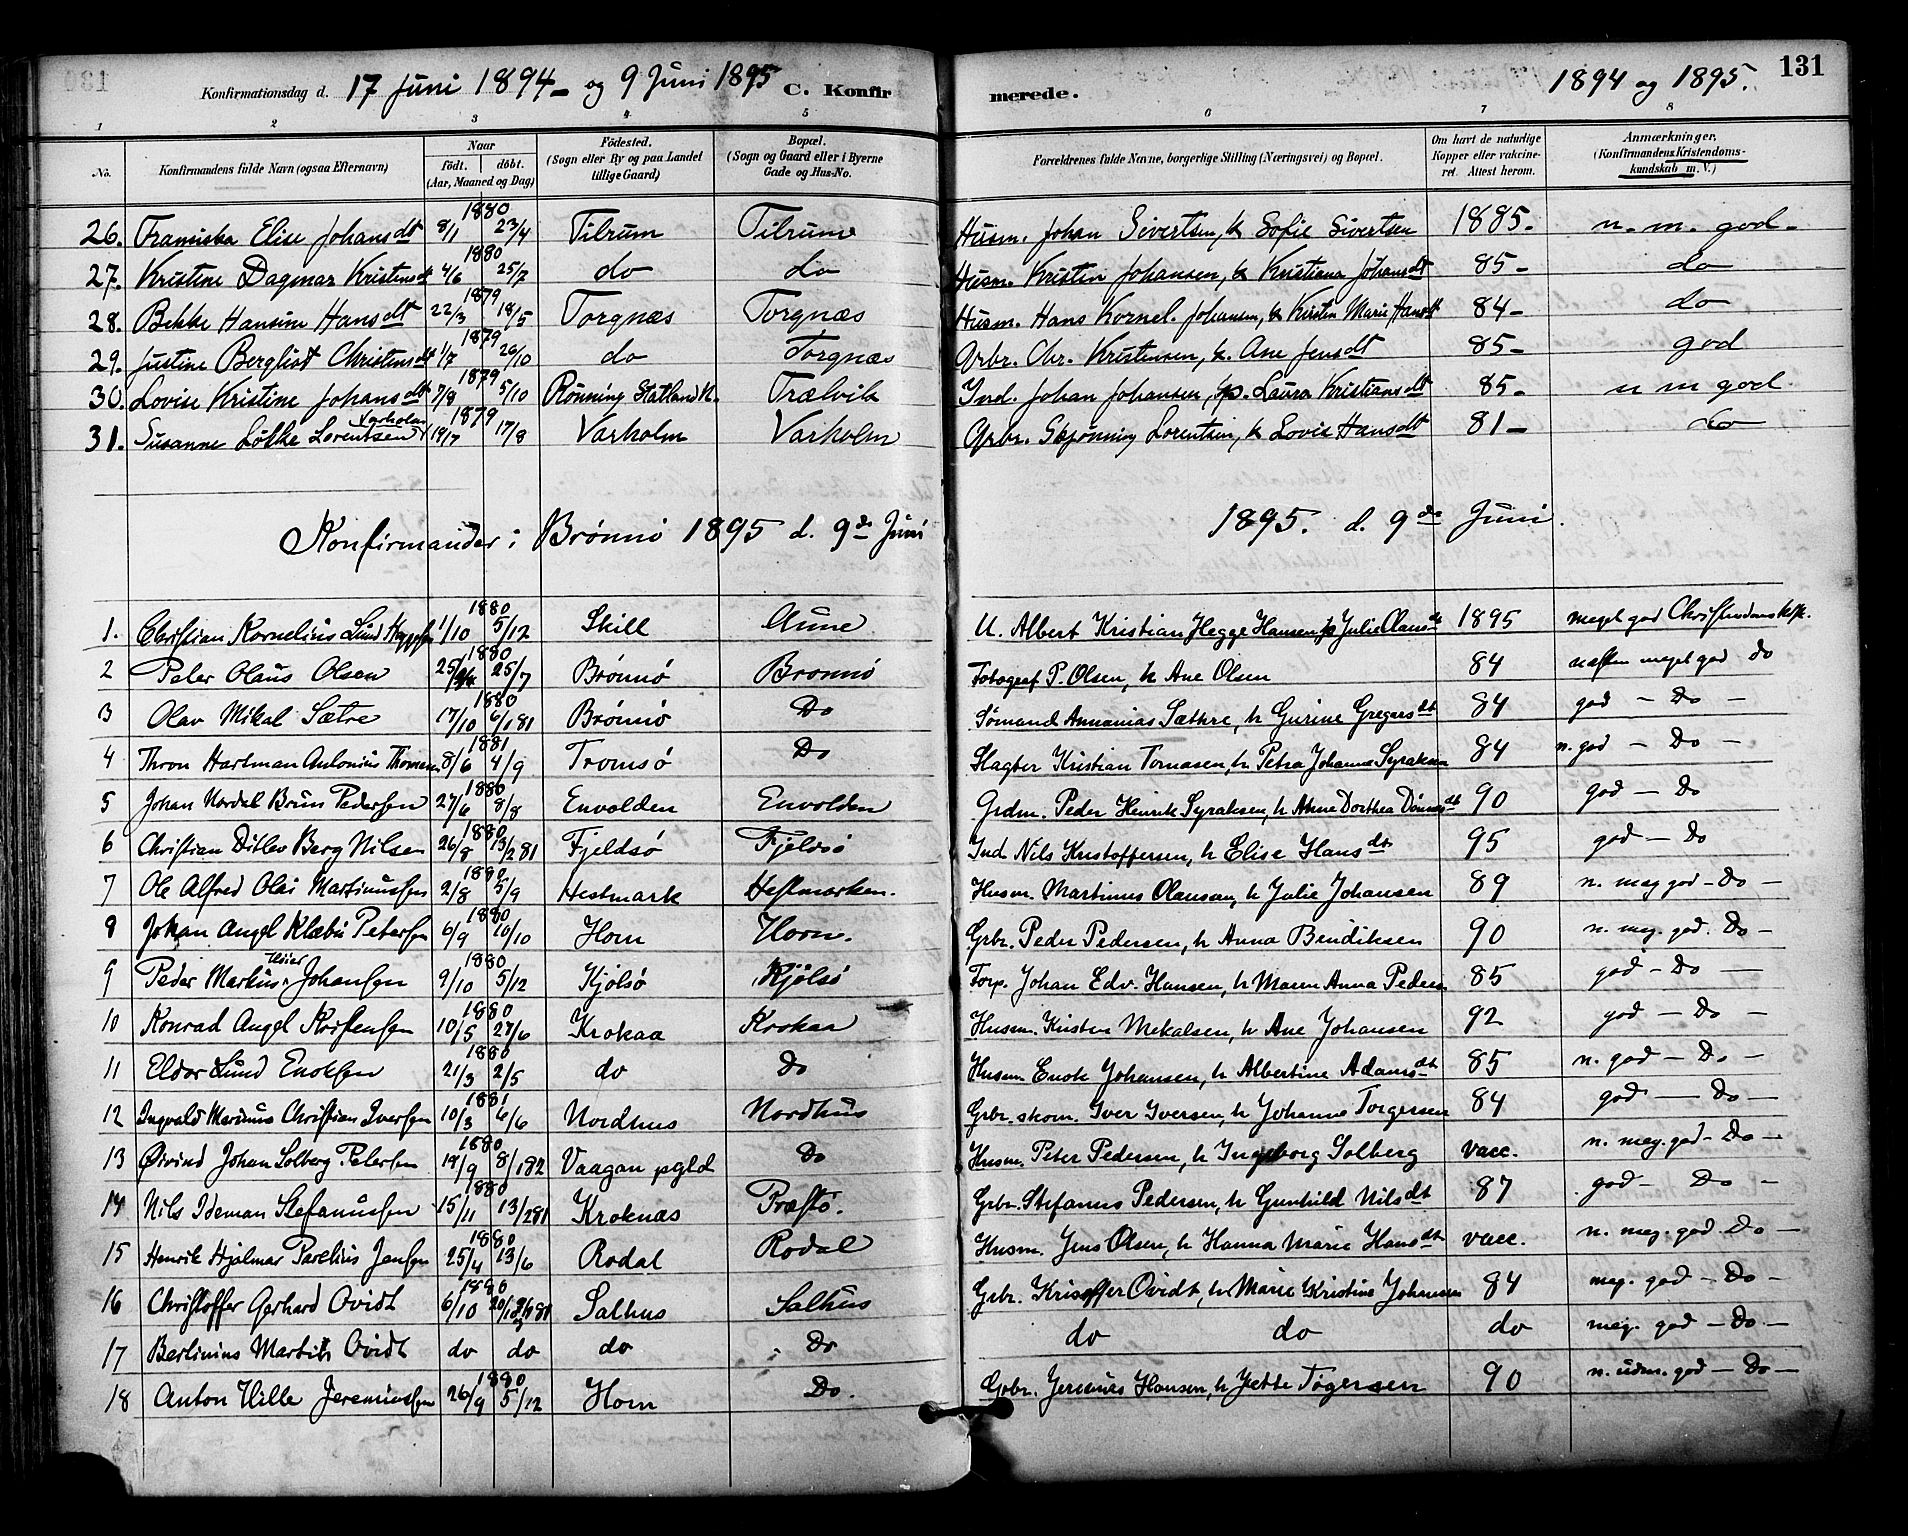 130
Konfirmationsdag d. 17 Juni 1894 - og 9 Juni 1895 C. Konfirmerede. 1894 og 1895. 131
1 2 3 4 5 6 7 8
No. Konfirmandens fulde Navn (ogsaa Efternavn) Naar født. døbt. (Aar, Maaned og Dag) Fødested. (Sogn eller By og paa Landet tillige Gaard) Bopæl. (Sogn og Gaard eller i Byerne Gade og Hus-No.) Forældrenes fulde Navne, borgerlige Stilling (Næringsvei) og Bopæl. Om havt de naturlige Kopper eller vaccineret. Attest herom. Anmærkninger. (Konfirmandens Kristendomskundskab m. V.)
26. Franiska Elise Johansdt 1880 8/1 23/4 Tilrum Tilrum Husm. Johan Sivertsen, h Sofie Sivertsen 1885- n. m. god-
27. Kristine Dagmar Kristensdt 1880 4/6 25/7 do do Husm. Kristen Johansen, h Kristiana Johansdt 85- do
28. Bekke Hansine Hansdt 1879 22/3 18/5 Torgnæs Torgnæs Husm. Hans Kornel. Johansen, h Kirsten Marie Hansdt 84- do
29. Justine Bergliot Christensdt 1879 1/7 26/10 do Torgnæs Grbr. Chr. Kristensen, h. Ane Jensdt 85- god
30. Lovise Kristine Johansdt 1879 7/8 5/10 Rønning Statland N. Trælvik Ind. Johan Johansen, p. Laura Kristiansdt 85- n m god.
31. Susanne Lotke Lorentsen Varholm 1879 19/7 17/8 Varholm Varholm Grbr. Skjønning Lorentsen, h Lovise Hansdt 81- do
Konfirmander i Brønnø 1895 d. 9de Juni 1895. d. 9de Juni.
1. Christian Kornelius Lund Heggesen 1880 1/10 5/12 Skill Aune U. Albert Kristian Hegge Hansen, p Julie Olausdt 1895 meget god Christendomskdsk.
2 Peter Olaus Olsen 1880 25/ 25/7 Brønnø Brønnø Fotograf P. Olsen, h Ane Olsen 84 næsten meget god Do
3 Olav Mikal Sætre 1880 17/10 6/1 81 Brønnø Do Sømand Annanias Sæthre, h Gurine Gregersdt 84 god - Do -
4 Thron Hartman Antonius Thomesen 1881 8/6 4/9 Tromsø Do Slagter Kristian Tomasen, h Petra Johanna Syraksen 84 n. god - Do -
5 Johan Nordal Brun Pedersen 1880 27/6 8/8 Envolden Envolden Grdm. Peder Henrik Syraksen, h Anna Dorthea Dønnesdt 90 god - Do
6 Christian Ditlev Berg Nilsen 1880 26/8 13/2 81 Fjeldsø Fjeldsø Ind Nils Kristoffersen, h Elise Hansdt 95 god - Do
7 Ole Alfred Olai Martinussen 1880 2/8 5/9 Hestmark Hestmarken. Husm. Martinus Olausen, h Julie Johansen 89 n. meg god - Do -
8 Johan Angel Klæbu Petersen 1880 6/9 10/10 Horn Horn. Grbr. Peder Pedersen, h Anna Bendiksen 90 n. meg. god. Do -
9 Peder Markus Høier Johansen 1880 9/10 5/12 Kjølsø Kjølsø Forp. Johan Edv. Hansen, h Maren Anna Peders 85 god - Do -
10 Konrad Angel Kristensen 1880 10/5 27/6 Krokaa Krokaa Husm. Kristen Mekalsen, h Ane Johansen 92 god - Do -
11 Eldor Lund Enoksen 1880 21/3 2/5 do Do Husm Enok Johansen, h Albertine Adamsdt 85 n. god - Do -
12 Ingvald Marinus Christian Iversen 1881 10/3 6/6 Nordhus Nordhus Grbr. skom. Iver Iversen, h Johanna Torgersen 84 god - Do -
13 Øivind Johan Solberg Petersen 1880 19/9 8/1 82 Vaagan pgld Do Husm. Peter Pedersen, h Ingeborg Solberg vacc. n. meg. god - Do -
14 Nils Ideman Stefanussen 1880 15/11 13/2 81 Kroknæs Præstø. Grbr. Stefanus Pedersen, h Gunhild Nilsdt 87 god - Do -
15 Henrik Hjalmar Parelius Jensen 1880 25/4 13/6 Rodal Rodal Husm. Jens Olsen, h Hanna Marie Hansdt vacc. n. meg. god. Do -
16 Christoffer Gerhard Ovidt 1880 6/10 20/1 81 Salhus Salhus Grbr. Krisoffer Ovidt, h Marie Kristine Johannes 84 meg. god - Do -
17 Berlinius Martin Ovidt do do do Do do do do meg. god - Do -
18 Anton Hille Jeremiassen 1880 26/9 5/12 Horn Do. Grbr. Jeremias Hansen, h Jette Tøgersen 90 n. udm. god - Do -